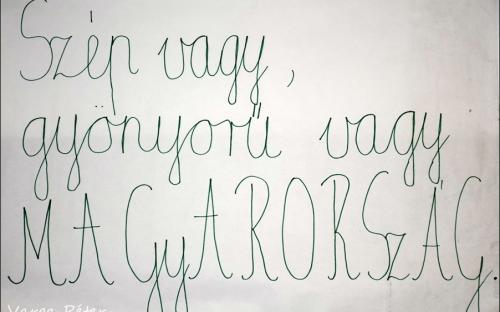 Szép vagy,
gyönyörű vagy
MAGyARORSzÁG.
Varga Péter